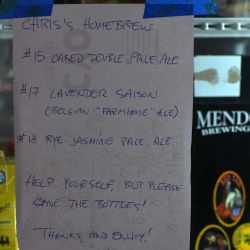 CHRIS'S HOMEBREW
#15 OAKED DOUBLE PALE ALE
#17 LAVENDER SAISON
(BELGIAN "FARMHOUSE" ALE)
#18 RYE-JASMINE PALE ALE
HELP YOURSELF, BUT PLEASE
SAVE THE BOTTLES!
THANKS AND ENJOY!
MENDO
BREWING